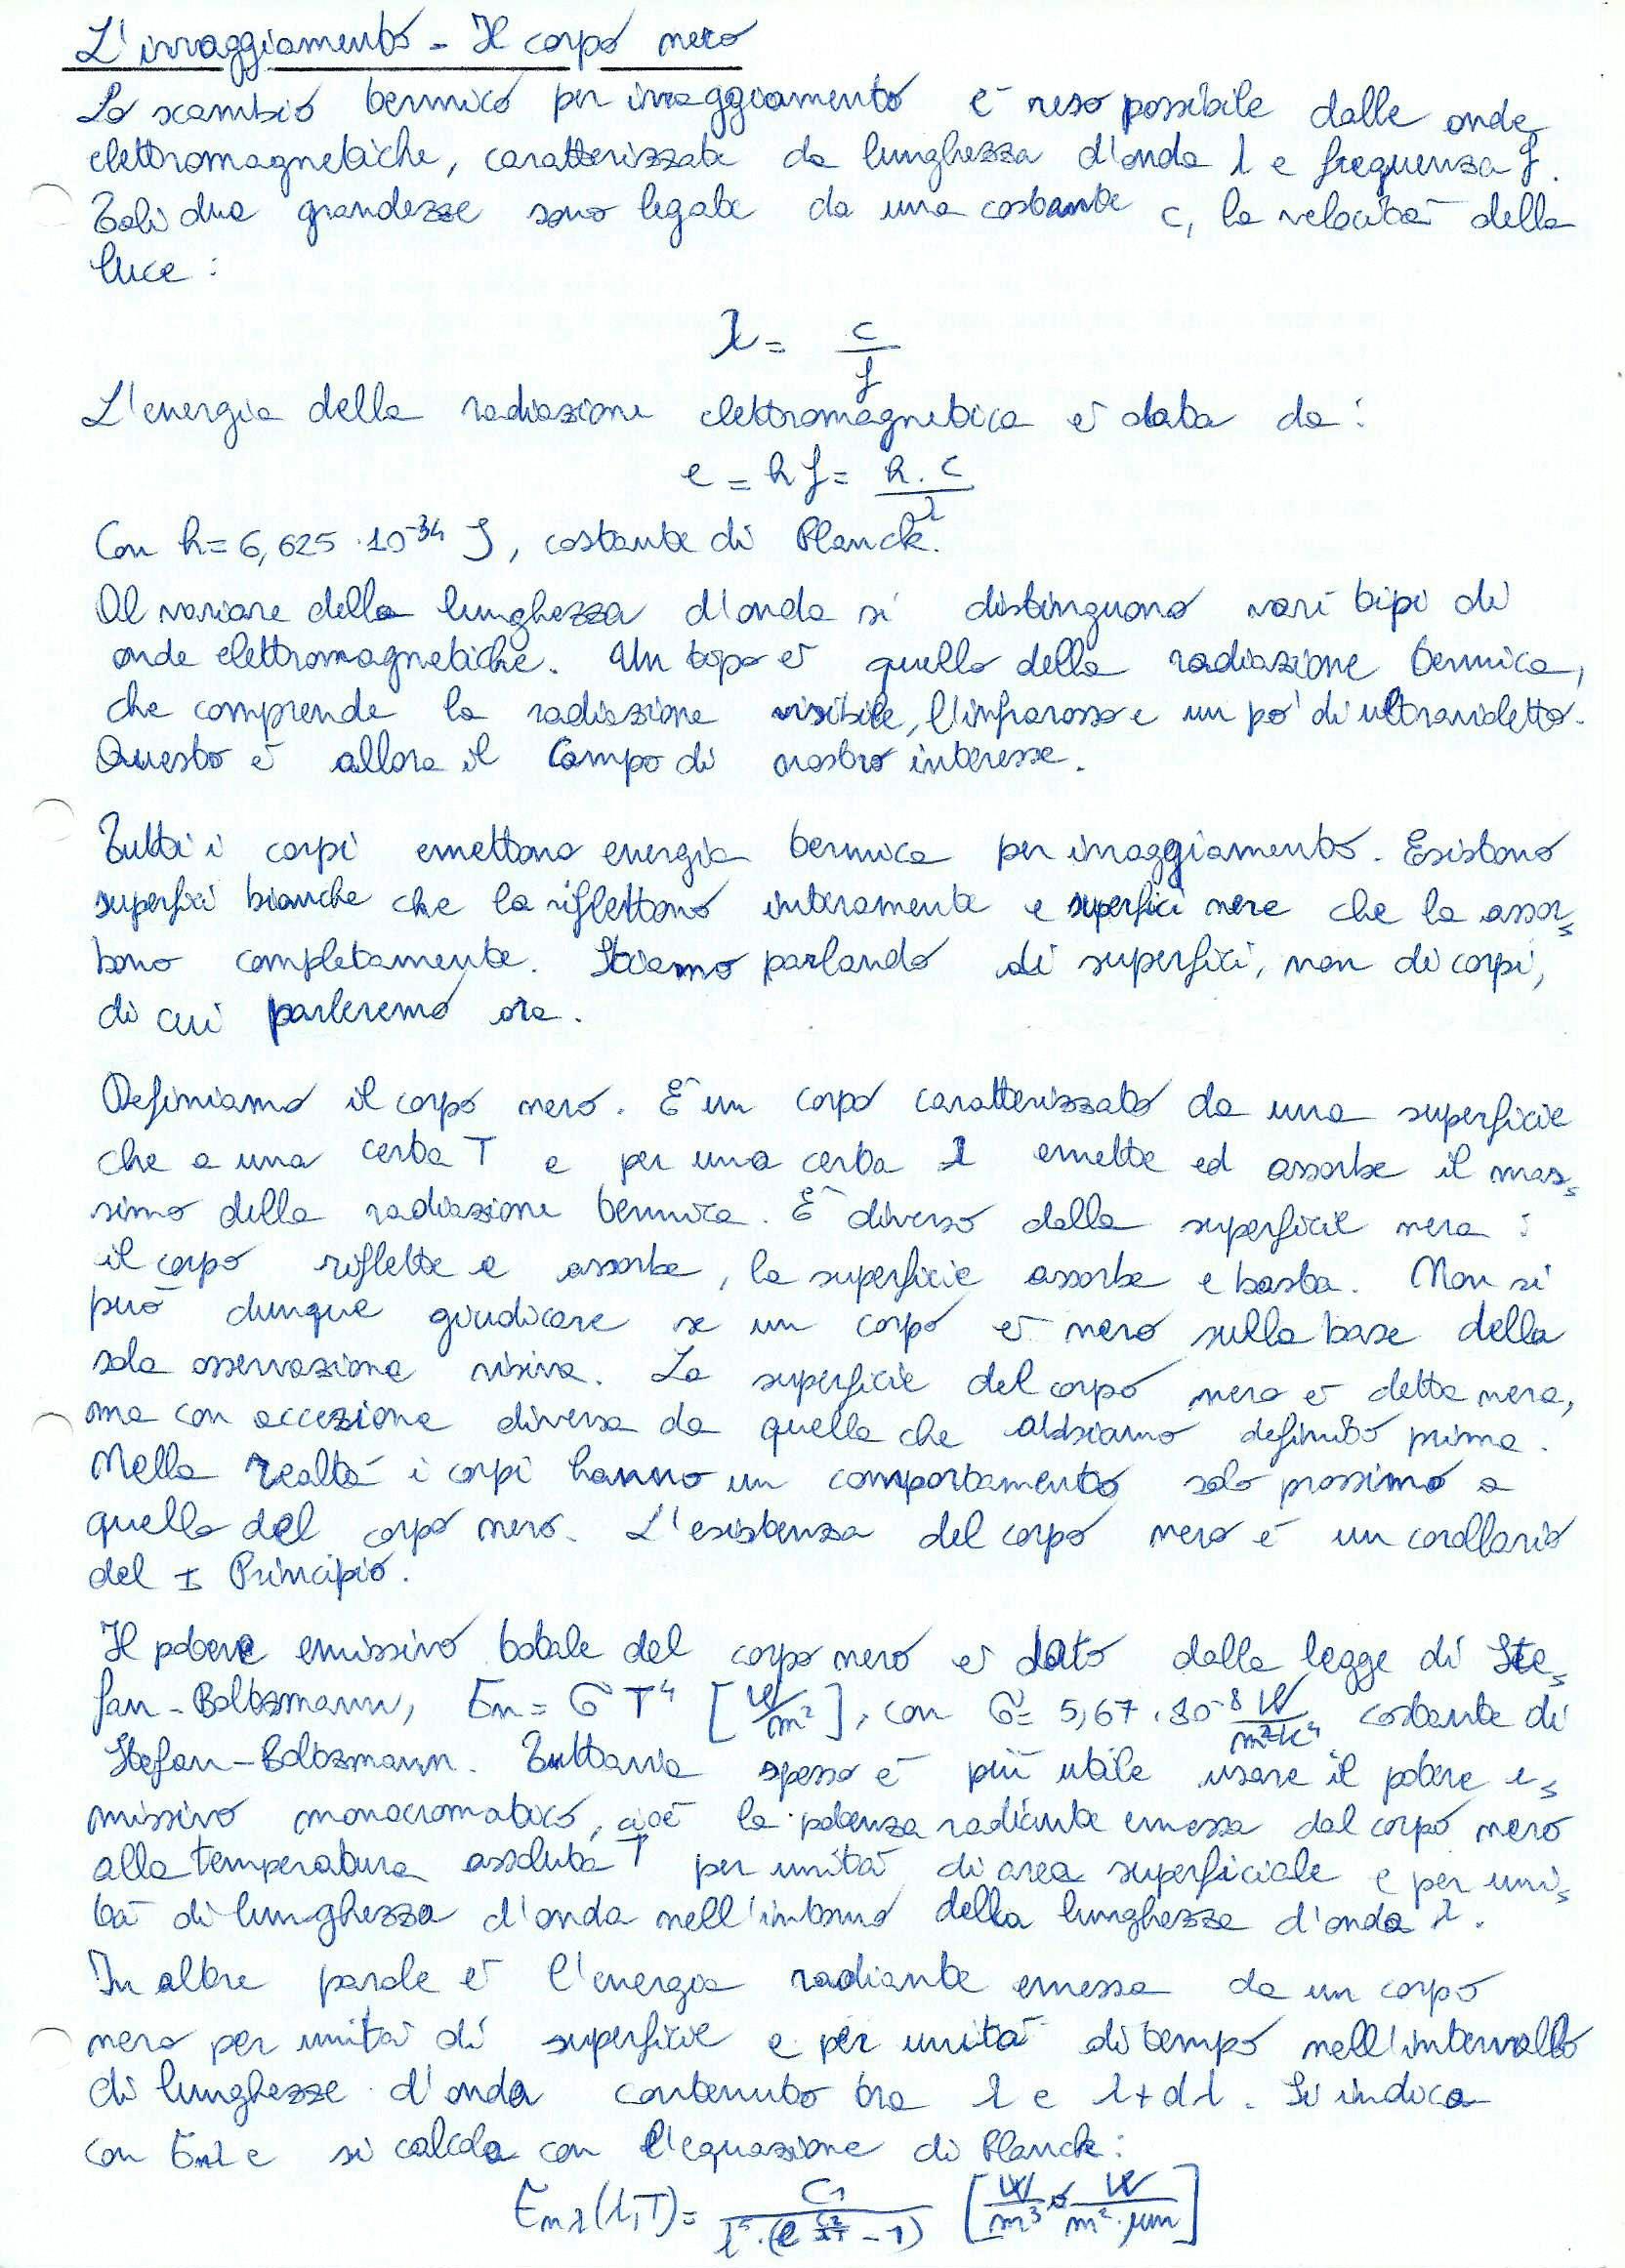 L'irraggiamento - Il corpo nero
Lo scambio termico per irraggiamento è reso possibile dalle onde
elettromagnetiche, caratterizzate da lunghezza d'onda λ e frequenza f.
Tali due grandezze sono legate da una costante c, la velocità della
luce:
λ = c/f
L'energia della radiazione elettromagnetica è data da:
e = h f = h·c/λ
Con h = 6,625·10⁻³⁴ J, costante di Planck.
Al variare della lunghezza d'onda si distinguono vari tipi di
onde elettromagnetiche. Un tipo è quello della radiazione termica,
che comprende la radiazione visibile, l'infrarosso e un po' di ultravioletto.
Questo è allora il campo di nostro interesse.
Tutti i corpi emettono energia termica per irraggiamento. Esistono
superfici bianche che la riflettono interamente e superfici nere che la assor-
bono completamente. Stiamo parlando di superfici, non di corpi,
di cui parleremo ora.
Definiamo il corpo nero. È un corpo caratterizzato da una superficie
che a una certa T e per una certa λ emette ed assorbe il mas-
simo della radiazione termica. È diverso dalla superficie nera:
il corpo riflette e assorbe, la superficie assorbe e basta. Non si
può dunque giudicare se un corpo è nero sulla base della
sola osservazione visiva. La superficie del corpo nero è detta nera,
ma con accezione diversa da quella che abbiamo definito prima.
Nella realtà i corpi hanno un comportamento solo prossimo a
quello del corpo nero. L'esistenza del corpo nero è un corollario
del I Principio.
Il potere emissivo totale del corpo nero è dato dalla legge di Ste-
fan-Boltzmann, En = σ T⁴ [W/m²], con σ = 5,67·10⁻⁸ W/m²K⁴ costante di
Stefan-Boltzmann. Tuttavia spesso è più utile usare il potere e-
missivo monocromatico, cioè la potenza radiante emessa dal corpo nero
alla temperatura assoluta T per unità di area superficiale e per uni-
tà di lunghezza d'onda nell'intorno della lunghezza d'onda λ.
In altre parole è l'energia radiante emessa da un corpo
nero per unità di superficie e per unità di tempo nell'intervallo
di lunghezze d'onda contenuto tra λ e λ+dλ. Si indica
con Enλ e si calcola con l'equazione di Planck:
Enλ(λ,T) = C1/(λ⁵·(e^(C2/λT) - 1)) [W/m³ o W/m²·μm]